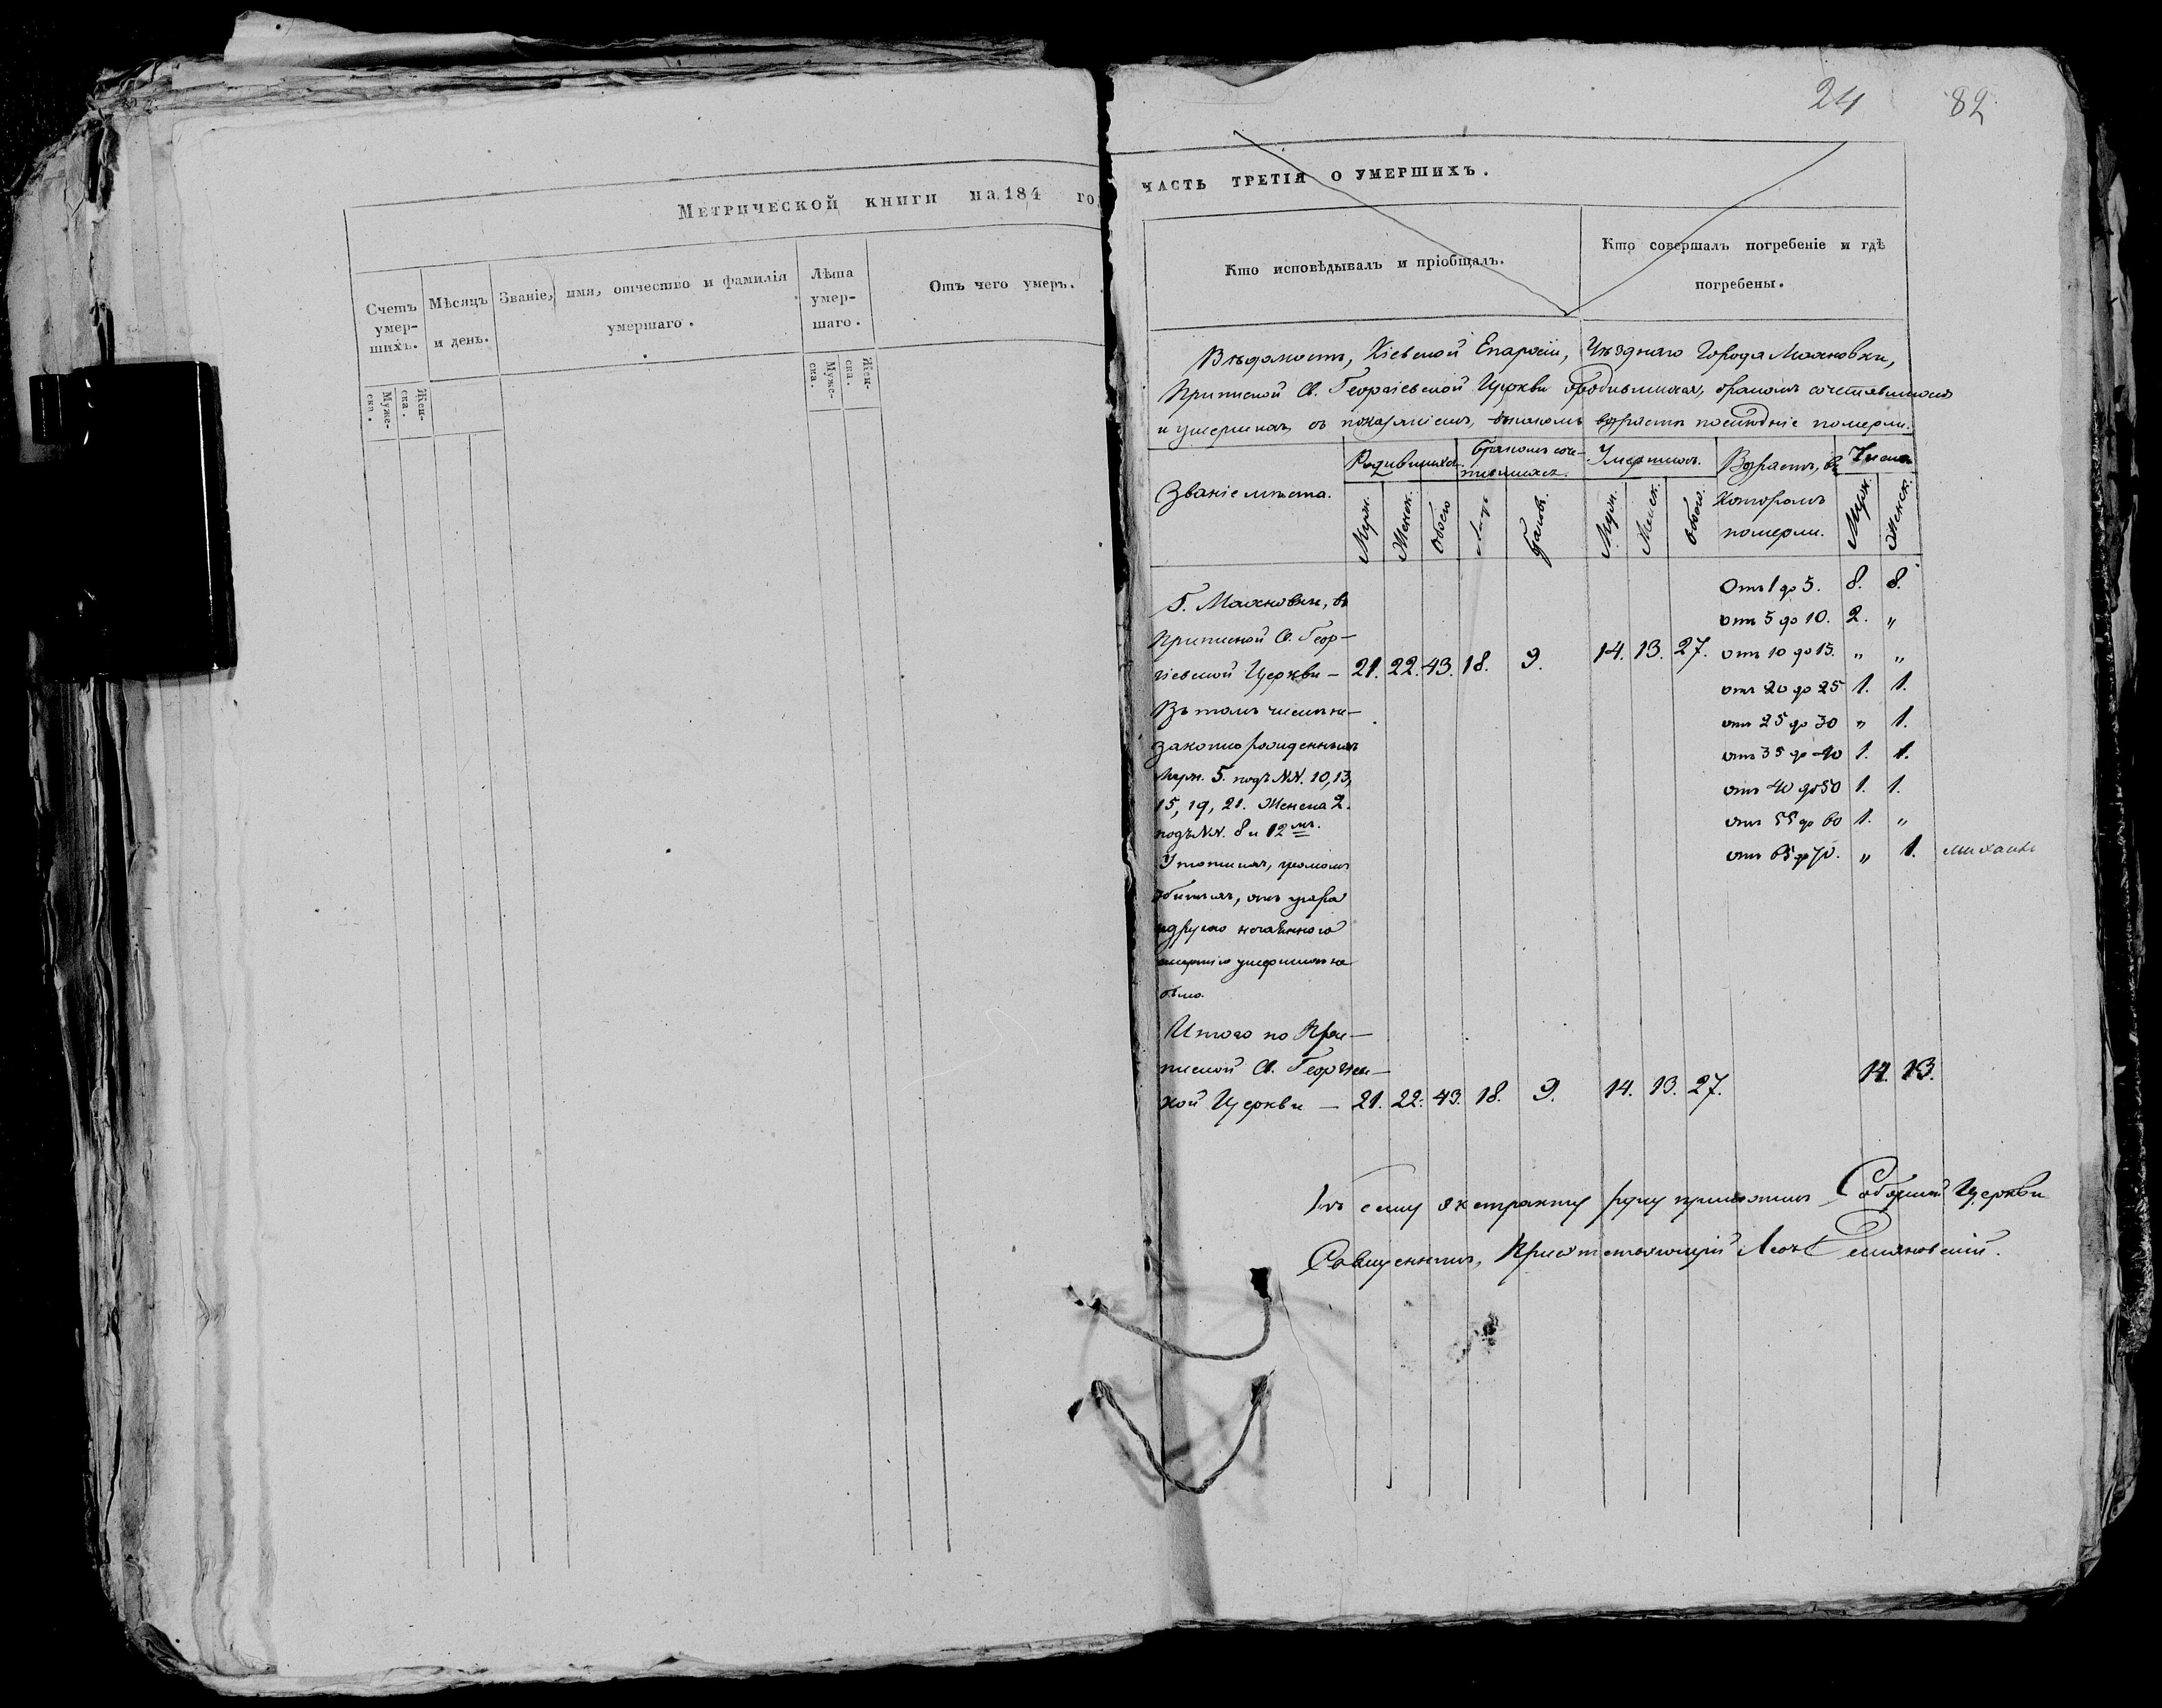 24 82
Метрической книги на 184 го
Счетъ умер- шихъ.
Мѣсяцъ и день.
Званіе, имя, отчество и фамилія умершаго.
Лѣта умер- шаго.
Отъ чего умеръ.
Муже- ска.
Жен- ска.
Муже- ска.
Жен- ска.
часть третія о умершихъ.
Кто исповѣдывалъ и пріобщалъ.
Кто совершалъ погребеніе и гдѣ погребены.
Вѣдомость, Кіевской Епархіи, Уѣзднаго Города Махновки,
Приписной Св. Георгіевской Церкви о родившихся, бракомъ сочетавшихся
и умершихъ съ показаніемъ, въ какомъ возрастѣ послѣдніе померли.
Званіе мѣста.
Родившихся
Бракомъ соче-
Умершихъ.
Возрастъ, въ
Число
Которомъ
померли.
Муж. Женск. Обоего
Лицъ Браковъ.
Муж. Женск. Обоего.
Муж. Женск.
Г. Махновки, въ
Приписной Св. Геор-
гіевской Церкви — 21. 22. 43. 18. 9. 14. 13. 27.
Въ томъ числѣ не-
законнорожденныхъ
Муж. 5. подъ NN. 10, 13,
15, 19, 21. Женска 2.
подъ NN. 8 и 12 мъ.
Утопшихъ, громомъ
убитыхъ, отъ угара
и другаго нечаяннаго
умершихъ не
было.
Отъ 1 до 5. 8. 8.
отъ 5 до 10. 2. "
отъ 10 до 15. " "
отъ 20 до 25 1. 1.
отъ 25 до 30 " 1.
отъ 35 до 40 1. 1.
отъ 40 до 50 1. 1.
отъ 55 до 60 1. "
отъ 65 до 70. " 1.
Итого по При-
писной Св. Георгіевс-
кой Церкви — 21. 22. 43. 18. 9. 14. 13. 27. 14. 13.
Къ сему экстракту руку приложилъ Соборной Церкви
Священникъ,